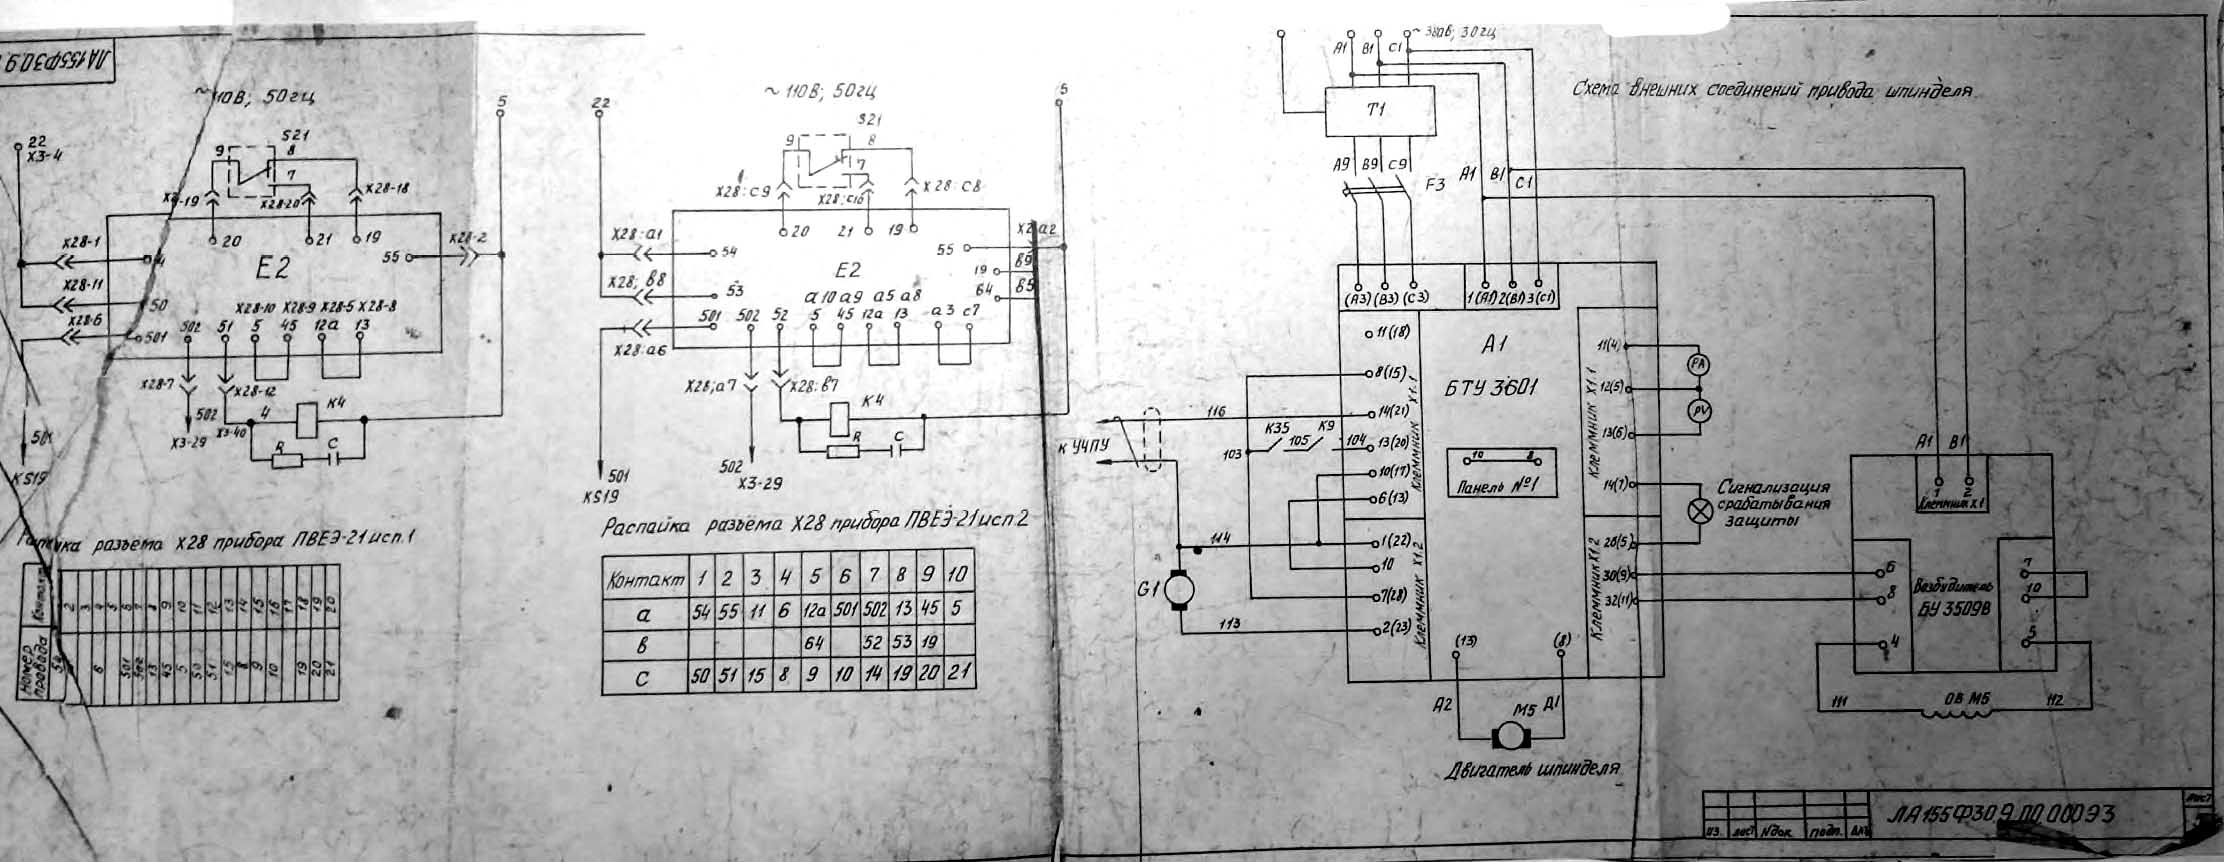 ЛА155Ф30.9
~110В; 50гц
22
Х3-4
5
S21
9
8
7
Х28-18
Х28-20
20
21
19
Х28-1
Х28-2
55
Е2
Х28-11
50
Х28-10 Х28-9 Х28-5 Х28-8
Х28-6
501
502
51
5
45
12а
13
Х28-7
Х28-12
502
4
К4
Х3-29
Х3-40
R
С
501
КS19
разъёма Х28 прибора ПВЕЭ-21 исп.1
Контакт
2 3 4 5 6 7 8 9 10 11 12 13 14 15 16 17 18 19 20
Номер провода
54 6 501 502 13 45 5 50 51 15 8 9 10 19 20 21
~110В; 50гц
22
5
S21
9
8
7
Х28:с9
Х28:с10
Х28:с8
20
21
19
Х28:а1
54
55
Х28:а2
Е2
19
в9
Х28; в8
53
64
в5
а10 а9 а5 а8
501
502
52
5
45
12а
13
а3 с7
Х28:а6
Х28;а7
Х28:в7
К4
R
С
501
КS19
502
Х3-29
Распайка разъёма Х28 прибора ПВЕЭ-21 исп.2
Контакт 1 2 3 4 5 6 7 8 9 10
а 54 55 11 6 12а 501 502 13 45 5
в 64 52 53 19
С 50 51 15 8 9 10 14 19 20 21
Схема внешних соединений привода шпинделя
А1 В1 С1
Т1
А9 В9 С9
F3
А1 В1 С1
(А3) (В3) (С3)
1(А1) 2(В1) 3(С1)
11(18)
А1
БТУ 3601
8(15)
14(21)
13(20)
10(17)
6(13)
1(22)
10
7(28)
2(23)
Клеммник Х1.1
Клеммник Х1.2
116
К35
105
К9
104
103
к УЧПУ
114
G1
113
10
8
Панель №1
Клеммник Х1.1
11(4)
12(5)
13(6)
14(7)
РА
РV
Клеммник Х1.2
26(5)
30(9)
32(11)
Сигнализация
срабатывания
защиты
(13)
(8)
А2
М5
Д1
Двигатель шпинделя
А1 В1
1 2
Клеммник Х1
6
8
4
Возбудитель
БУ 3509В
7
10
5
111
ОВ М5
112
ИЗ. Лист №док. Подп.
ЛА155Ф30.9.00.000Э3
Лист